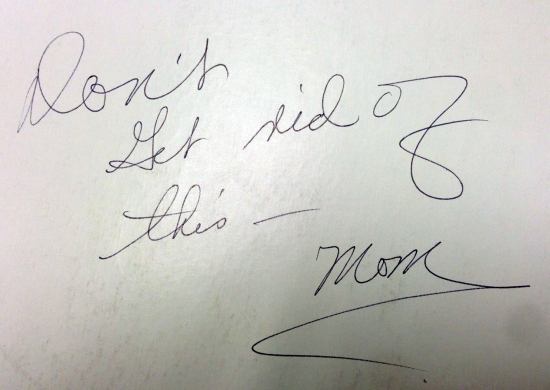 Don't
Get rid of
this —
Mom